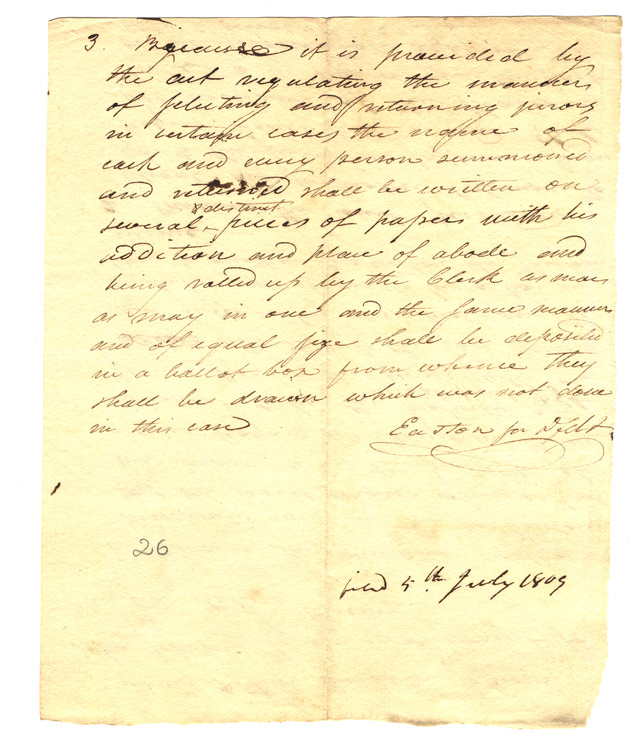 3. Because it is provided by
the act regulating the manner
of selecting and returning jurors
in certain cases the name of
each and every person summoned
and returned shall be written on
several & distinct pieces of papers with his
addition and place of abode and
being rolled up by the Clerk as near
as may in one and the same manner
and of equal size shall be deposited
in a ballot box from whence they
shall be drawn which was not done
in this case
Easton for Deft
26
filed 5th July 1809